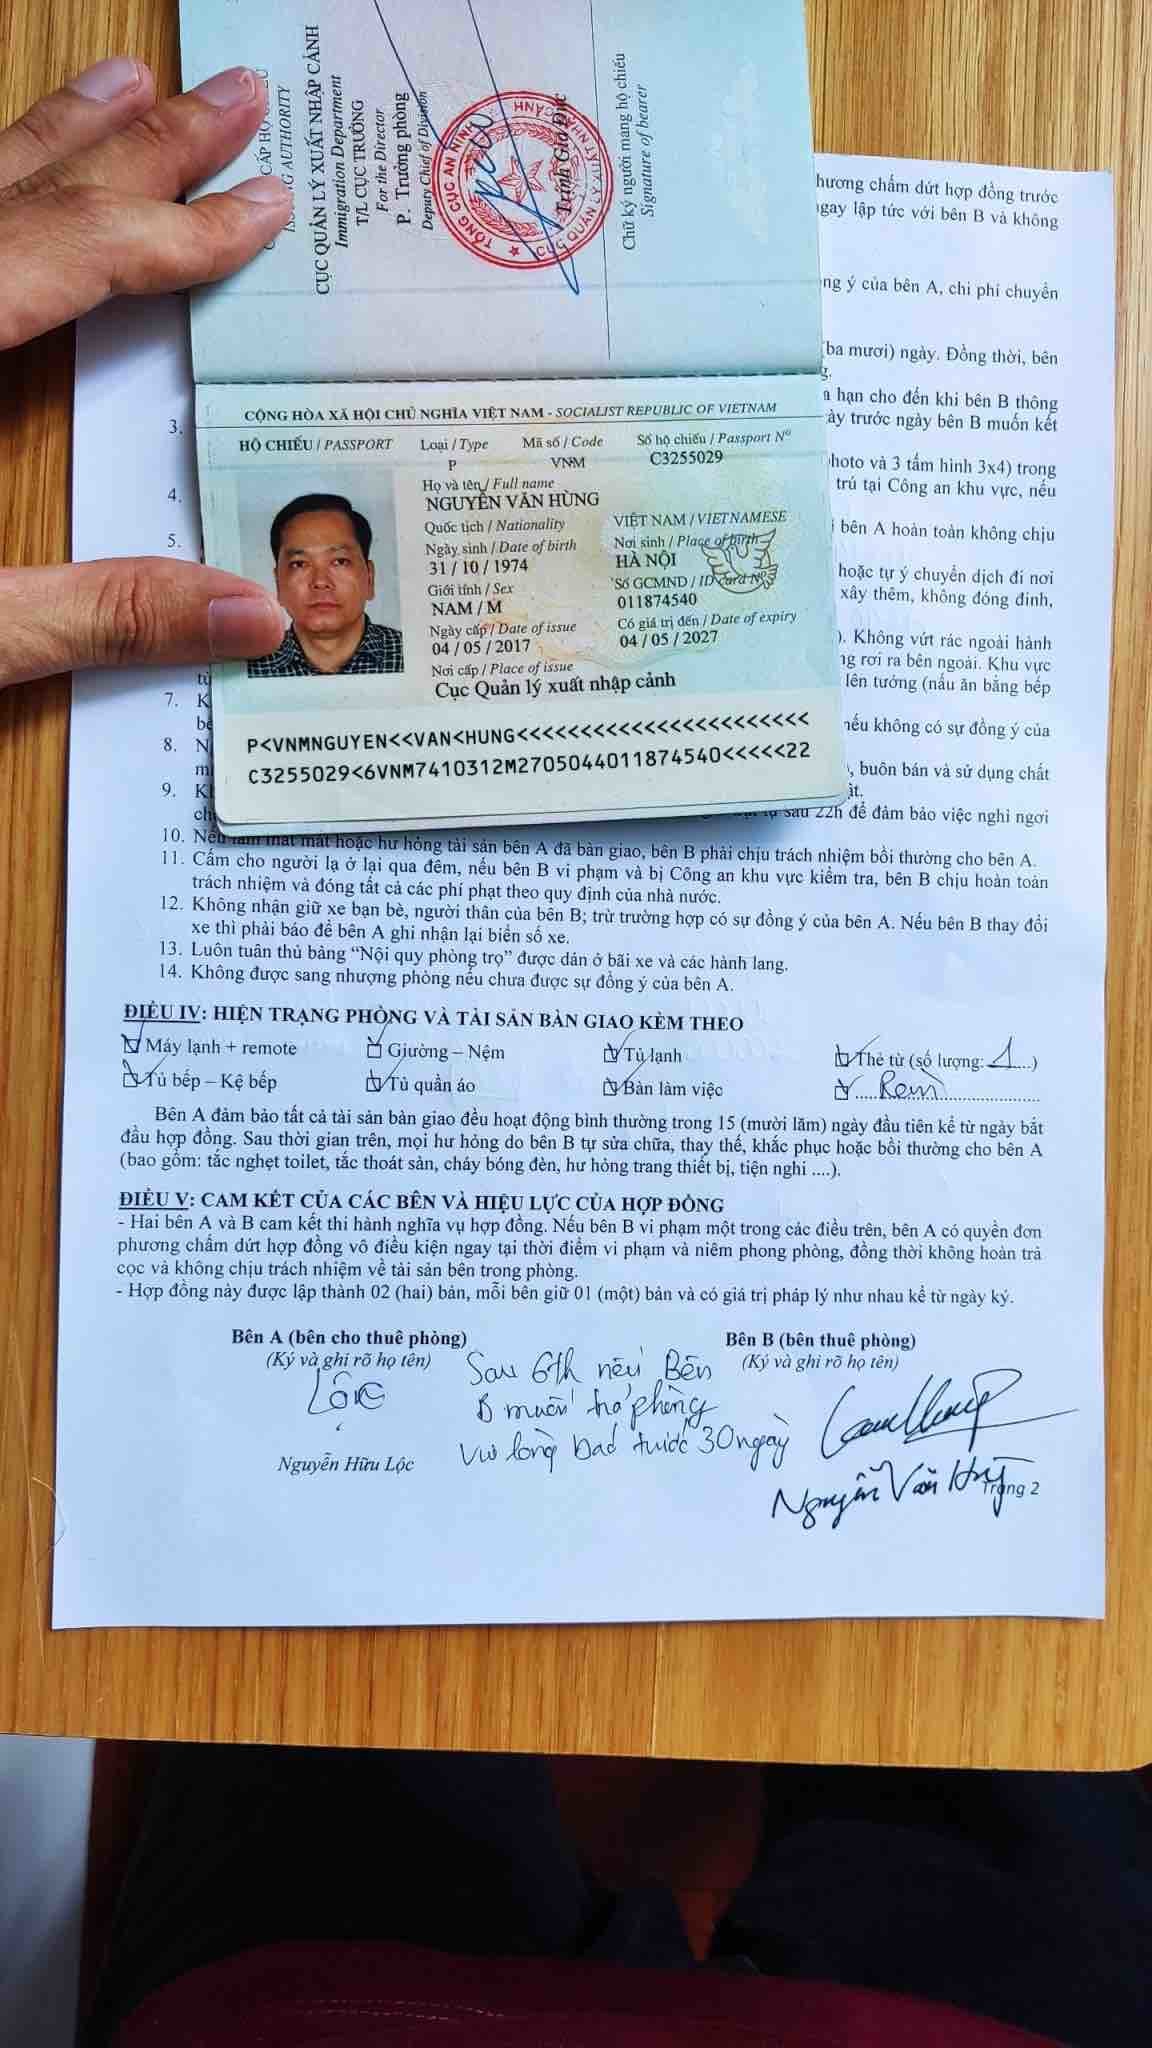 CỤC QUẢN LÝ XUẤT NHẬP CẢNH
Immigration Department
T/L CỤC TRƯỞNG
For the Director
P. Trưởng phòng
Deputy Chief of Division
TỔNG CỤC AN NINH
Trịnh Gia Đức
Chữ ký người mang hộ chiếu
Signature of bearer
CỘNG HÒA XÃ HỘI CHỦ NGHĨA VIỆT NAM - SOCIALIST REPUBLIC OF VIETNAM
HỘ CHIẾU / PASSPORT
Loại / Type
P
Mã số / Code
VNM
Số hộ chiếu / Passport Nº
C3255029
Họ và tên / Full name
NGUYỄN VĂN HÙNG
Quốc tịch / Nationality
VIỆT NAM / VIETNAMESE
Ngày sinh / Date of birth
31 / 10 / 1974
Nơi sinh / Place of birth
HÀ NỘI
Giới tính / Sex
NAM / M
Số GCMND / ID card Nº
011874540
Ngày cấp / Date of issue
04 / 05 / 2017
Có giá trị đến / Date of expiry
04 / 05 / 2027
Nơi cấp / Place of issue
Cục Quản lý xuất nhập cảnh
P<VNMNGUYEN<<VAN<HUNG<<<<<<<<<<<<<<<<<<<<<<<
C3255029<6VNM7410312M2705044011874540<<<<<22
hương chấm dứt hợp đồng trước
ngay lập tức với bên B và không
ng ý của bên A, chi phí chuyển
(ba mươi) ngày. Đồng thời, bên
3.
a hạn cho đến khi bên B thông
ày trước ngày bên B muốn kết
4.
hoto và 3 tấm hình 3x4) trong
trú tại Công an khu vực, nếu
5.
bên A hoàn toàn không chịu
hoặc tự ý chuyển dịch đi nơi
xây thêm, không đóng đinh,
). Không vứt rác ngoài hành
ng rơi ra bên ngoài. Khu vực
lên tường (nấu ăn bằng bếp
7. K
nếu không có sự đồng ý của
8. N
, buôn bán và sử dụng chất
9.
sau 22h để đảm bảo việc nghỉ ngơi
10. Nếu làm mất mát hoặc hư hỏng tài sản bên A đã bàn giao, bên B phải chịu trách nhiệm bồi thường cho bên A.
11. Cấm cho người lạ ở lại qua đêm, nếu bên B vi phạm và bị Công an khu vực kiểm tra, bên B chịu hoàn toàn
trách nhiệm và đóng tất cả các phí phạt theo quy định của nhà nước.
12. Không nhận giữ xe bạn bè, người thân của bên B; trừ trường hợp có sự đồng ý của bên A. Nếu bên B thay đổi
xe thì phải báo để bên A ghi nhận lại biển số xe.
13. Luôn tuân thủ bảng “Nội quy phòng trọ” được dán ở bãi xe và các hành lang.
14. Không được sang nhượng phòng nếu chưa được sự đồng ý của bên A.
ĐIỀU IV: HIỆN TRẠNG PHÒNG VÀ TÀI SẢN BÀN GIAO KÈM THEO
Máy lạnh + remote
Giường – Nệm
Tủ lạnh
Thẻ từ (số lượng: 1 )
Tủ bếp – Kệ bếp
Tủ quần áo
Bàn làm việc
Rèm
Bên A đảm bảo tất cả tài sản bàn giao đều hoạt động bình thường trong 15 (mười lăm) ngày đầu tiên kể từ ngày bắt
đầu hợp đồng. Sau thời gian trên, mọi hư hỏng do bên B tự sửa chữa, thay thế, khắc phục hoặc bồi thường cho bên A
(bao gồm: tắc nghẹt toilet, tắc thoát sàn, cháy bóng đèn, hư hỏng trang thiết bị, tiện nghi ....).
ĐIỀU V: CAM KẾT CỦA CÁC BÊN VÀ HIỆU LỰC CỦA HỢP ĐỒNG
- Hai bên A và B cam kết thi hành nghĩa vụ hợp đồng. Nếu bên B vi phạm một trong các điều trên, bên A có quyền đơn
phương chấm dứt hợp đồng vô điều kiện ngay tại thời điểm vi phạm và niêm phong phòng, đồng thời không hoàn trả
cọc và không chịu trách nhiệm về tài sản bên trong phòng.
- Hợp đồng này được lập thành 02 (hai) bản, mỗi bên giữ 01 (một) bản và có giá trị pháp lý như nhau kể từ ngày ký.
Bên A (bên cho thuê phòng)
(Ký và ghi rõ họ tên)
Lộc
Nguyễn Hữu Lộc
Sau 6th nếu Bên
B muốn trả phòng
vui lòng báo trước 30 ngày
Bên B (bên thuê phòng)
(Ký và ghi rõ họ tên)
Nguyễn Văn Hùng
Trang 2